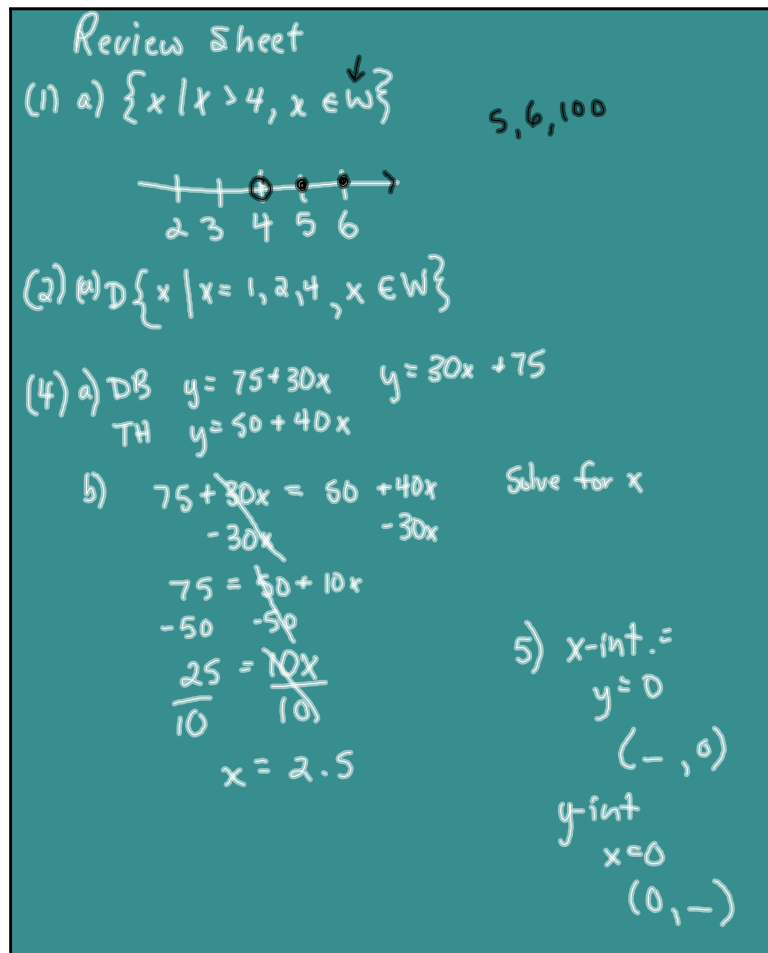 Review Sheet
(1) a) {x | x > 4, x ∈ W}
↓
5, 6, 100
2 3 4 5 6
(2) (a) D {x | x = 1, 2, 4, x ∈ W}
(4) a) DB y = 75 + 30x y = 30x + 75
TH y = 50 + 40x
b) 75 + 30x = 50 + 40x Solve for x
-30x -30x
75 = 50 + 10x
-50 -50
25 = 10x
10 10
x = 2.5
5) x-int. =
y = 0
(_, 0)
y-int
x = 0
(0, _)